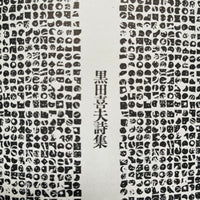 黒田喜夫詩集